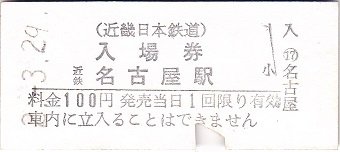 3.29
(近畿日本鉄道)
入場券
近鉄 名古屋駅
料金100円 発売当日1回限り有効
車内に立入ることはできません
小
入
⑰
名古屋